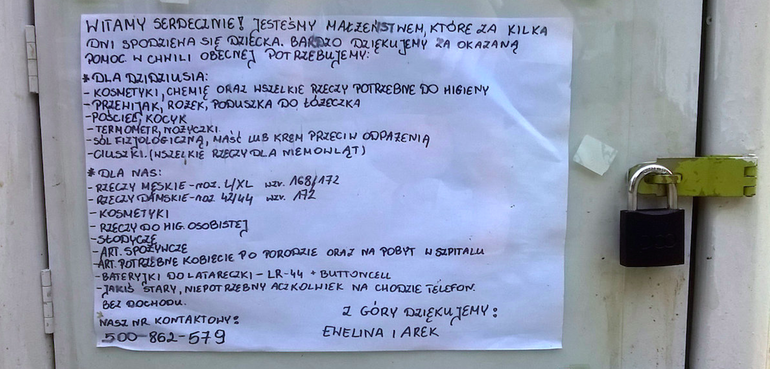 WITAMY SERDECZNIE! JESTEŚMY MAŁŻEŃSTWEM, KTÓRE ZA KILKA
DNI SPODZIEWA SIĘ DZIECKA. BARDZO DZIĘKUJEMY ZA OKAZANĄ
POMOC W CHWILI OBECNEJ POTRZEBUJEMY:
* DLA DZIDZIUSIA:
- KOSMETYKI, CHEMIĘ ORAZ WSZELKIE RZECZY POTRZEBNE DO HIGIENY
- PRZEWIJAK, ROŻEK, PODUSZKA DO ŁÓŻECZKA
- POŚCIEL, KOCYK
- TERMOMETR, NOŻYCZKI
- SÓL FIZJOLOGICZNĄ, MAŚĆ LUB KREM PRZECIW ODPAŻENIĄ
- CIUSZKI. (WSZELKIE RZECZY DLA NIEMOWLĄT)
* DLA NAS:
- RZECZY MĘSKIE - ROZ. L/XL WZR. 168/172
- RZECZY DAMSKIE - ROZ 42/44 WZR. 172
- KOSMETYKI
- RZECZY DO HIG. OSOBISTEJ
- SŁODYCZE
- ART. SPOŻYWCZE
- ART. POTRZEBNE KOBIECIE PO PORODZIE ORAZ NA POBYT W SZPITALU
- BATERYJKI DO LATARECZKI - LR-44 + BUTTONCELL
- JAKIŚ STARY, NIEPOTRZEBNY ACZKOLWIEK NA CHODZIE TELEFON.
BEZ DOCHODU.
NASZ NR KONTAKTOWY:
500-862-579
Z GÓRY DZIĘKUJEMY:
EWELINA I AREK